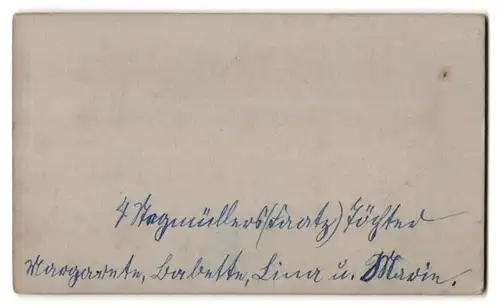 4 Stegmüllers (Kaatz) Töchter
Margarete, Babette, Lina u. Marie.